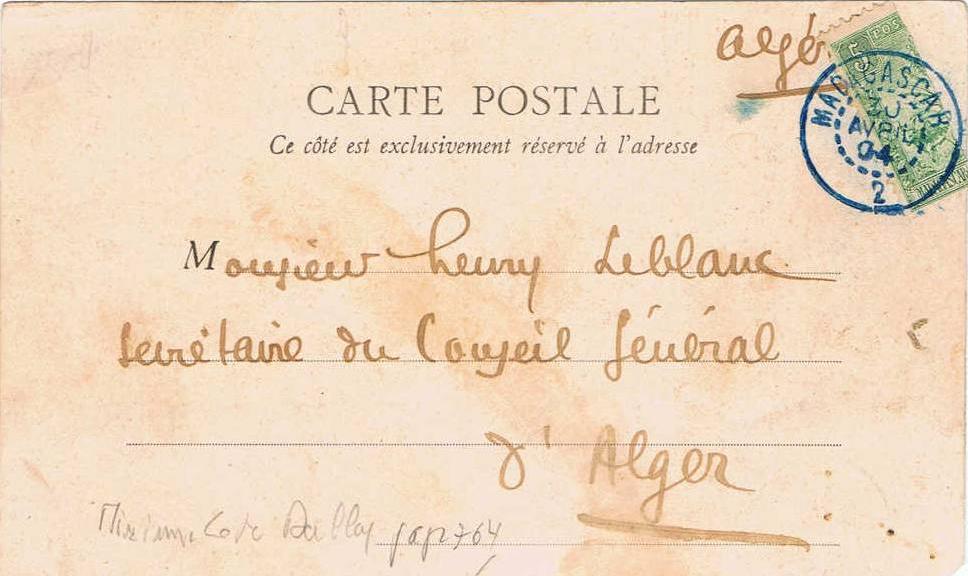 Algé
5
POS
MADAGASCAR
AVRIL
04
2
CARTE POSTALE
Ce côté est exclusivement réservé à l'adresse
Monsieur henry Leblanc
Secrétaire du Conseil Général
d'Alger